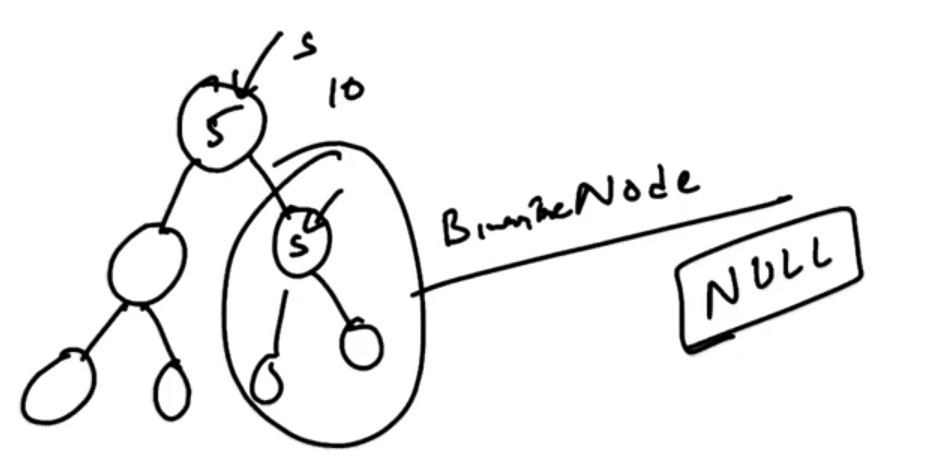 5
10
5
5
BinaryTreeNode
NULL